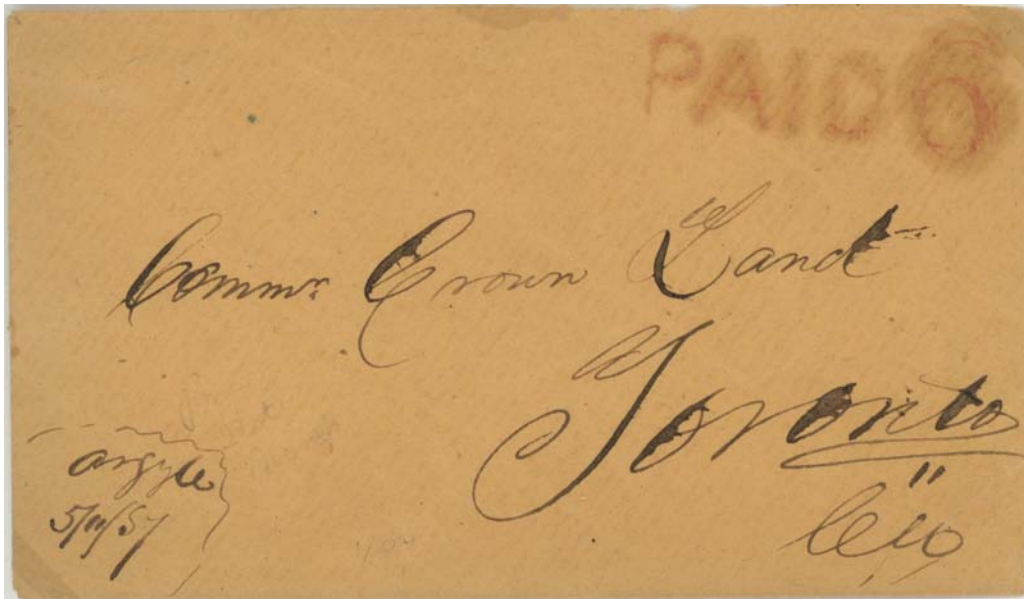 PAID 6
Commr Crown Land
Toronto
argyle
5/11/57